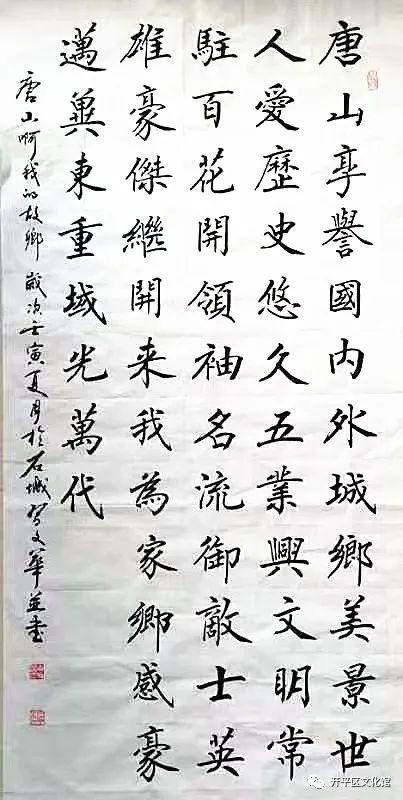 唐山享譽國内外城鄉美景世
人愛歷史悠久五業興文明常
駐百花開領袖名流御敵士英
雄豪傑繼開来我為家卿感豪
邁冀東重域光萬代
唐山啊我的故鄉 歲次壬寅夏月於石城 文華並書
开平区文化馆